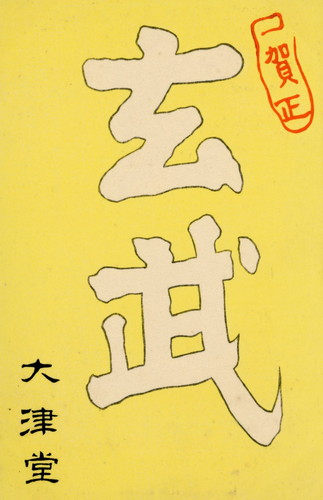 賀正
玄武
大津堂